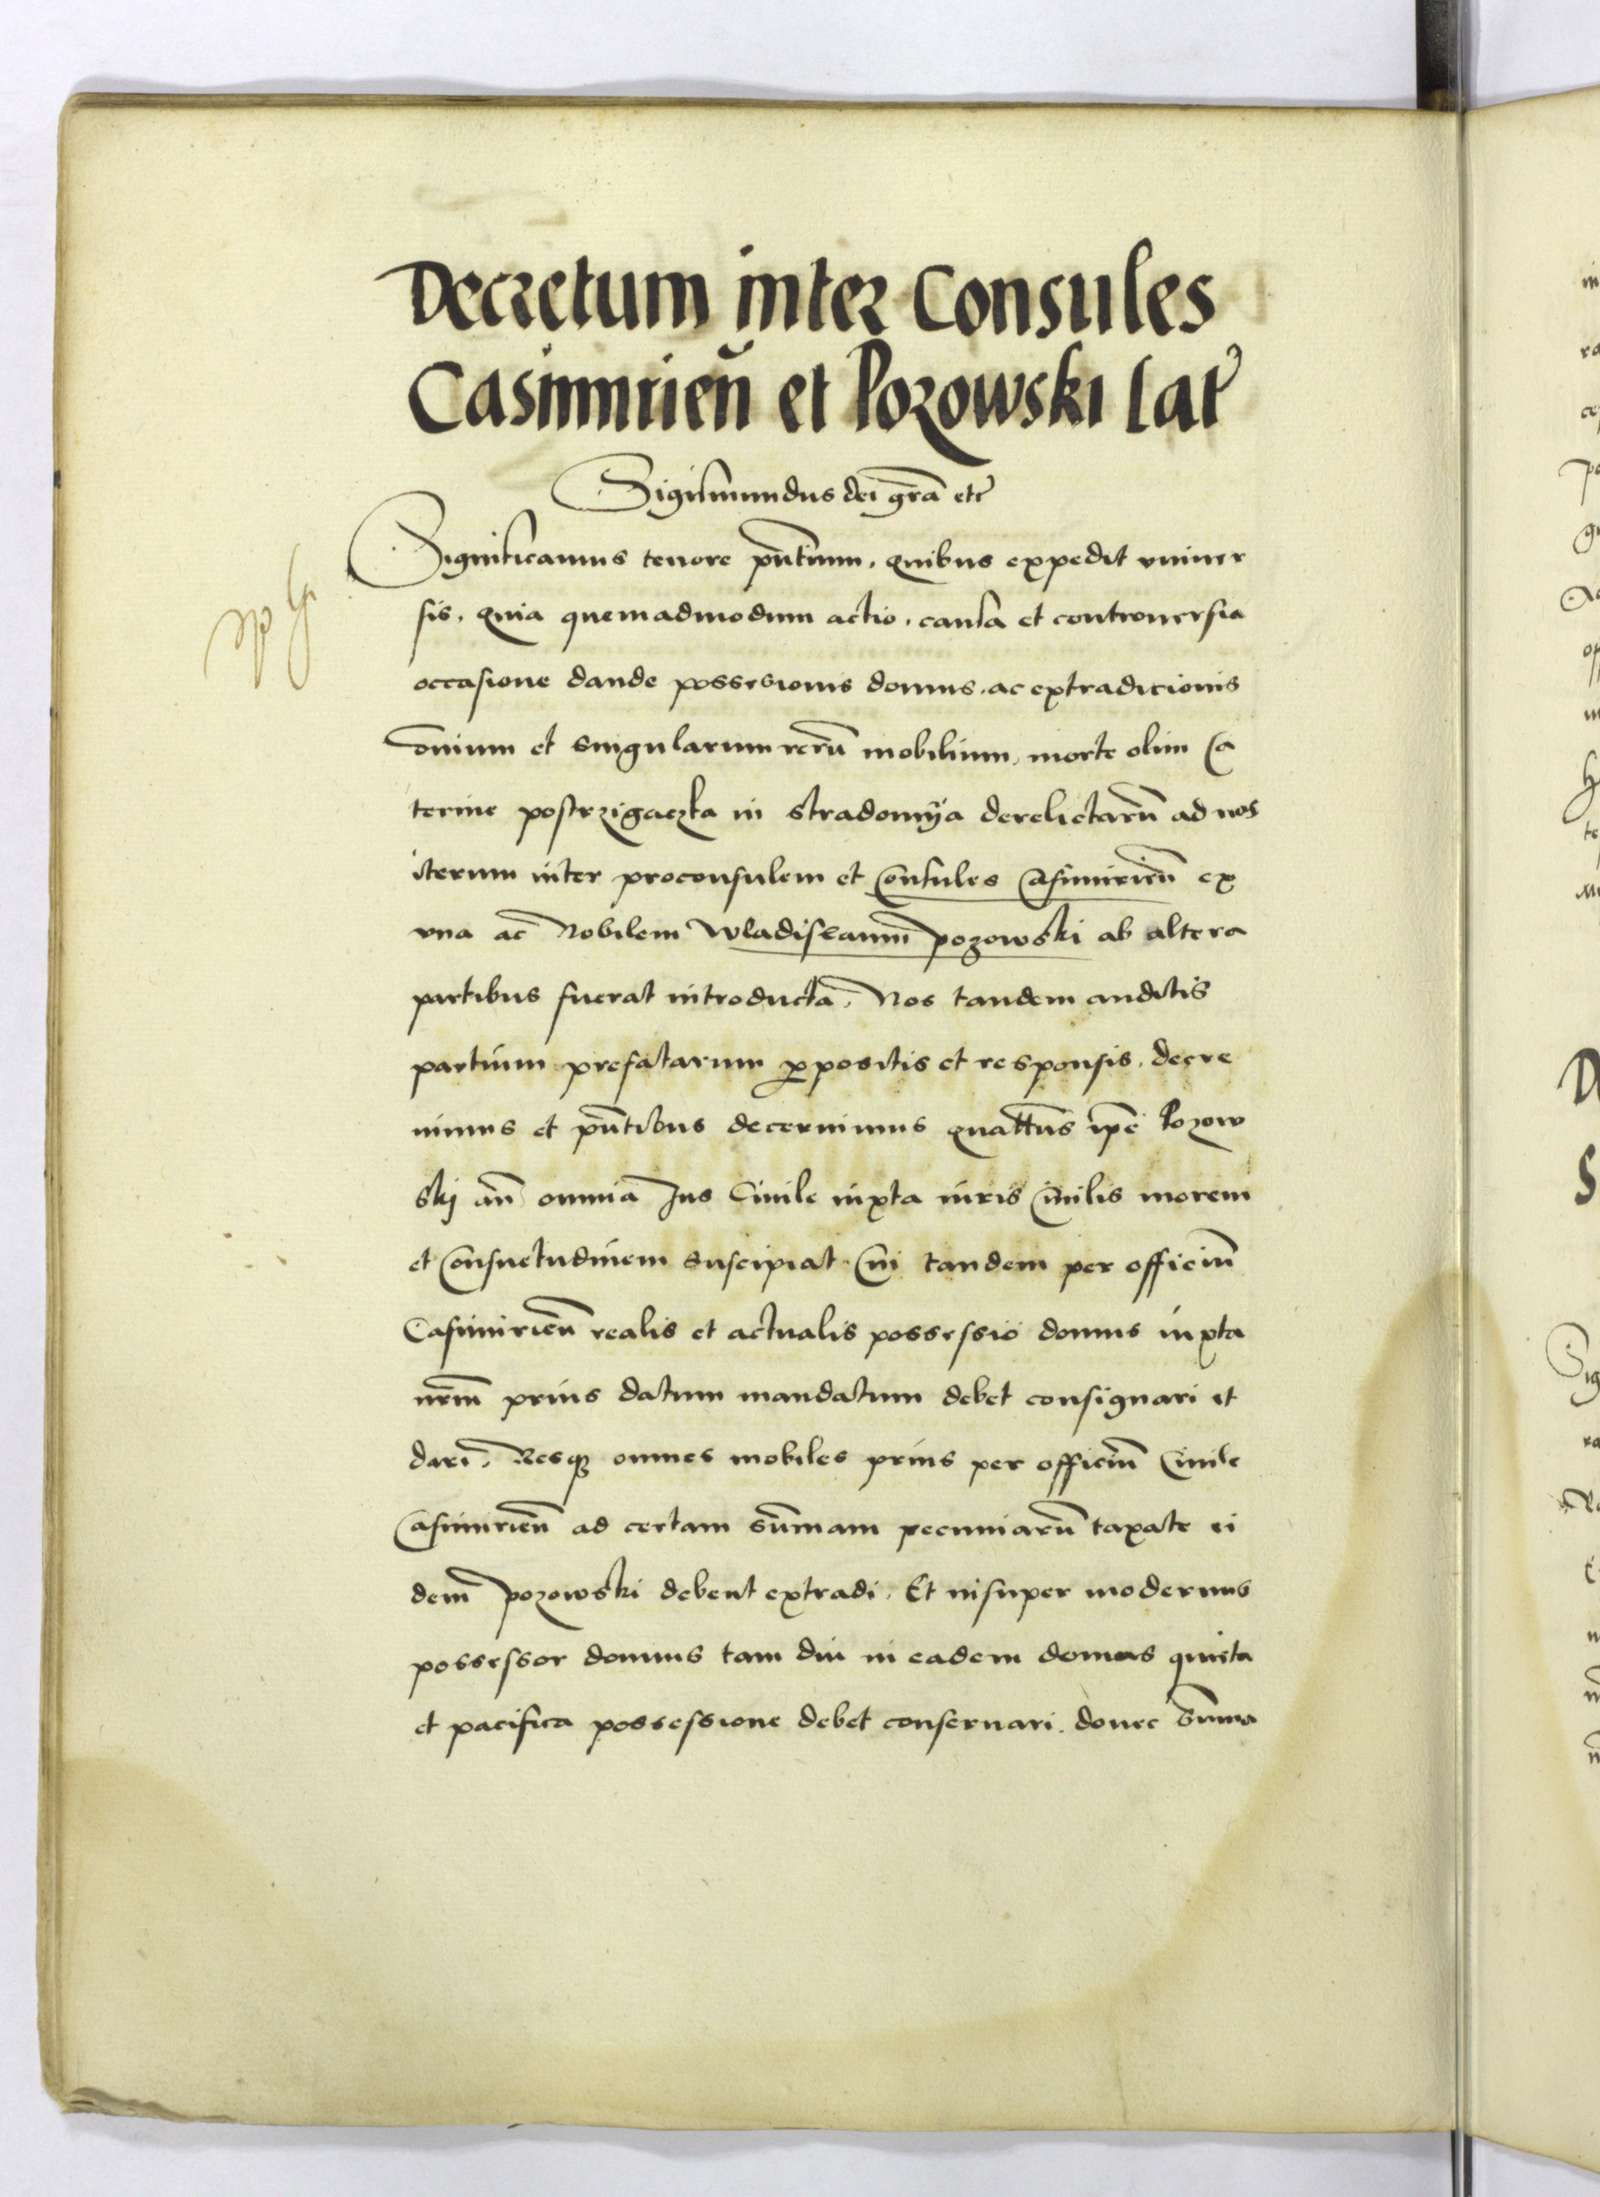 Decretum inter Consules
Casimirien̄ et Pozowski lat̄
Sigismundus dei gr̄a etc̄
Significamus tenore pn̄tium, quibus expedit vniuer
sis, quia quemadmodum actio, causa et controuersia
occasione dande possessionis domus, ac extradicionis
om̄nium et singularum reru̅ mobilium, morte olim Ca
terine postrzigaczka in Stradomÿa derelictaru̅ ad nos
iterum inter proconsulem et Consules Casimirien̄ ex
vna ac̄ Nobilem Wladislaum̄ Pozowski ab altera
partibus fuerat introducta, Nos tandem auditis
partium prefatarum ꝓpositis et responsis, decre
uimus et pn̄tibus decernimus quatt̄us ip̄e Pozow
skj an̄ omnia Jus Ciuile iuxta iuris Ciuilis morem
et Consuetudinem suscipiat Cui tandem per officiu̅
Casimirien̄ realis et actualis possessio domus iuxta
nr̄m prius datum mandatum debet consignari et
dari, Resqꝫ omnes mobiles prius per officiu̅ Ciuile
Casimirien̄ ad certam sum̄mam pecuniaru̅ taxate ei
dem̄ Pozowski debent extradi, Et insuper modernus
possessor domus tam diu in eadem domus quieta
et pacifica possessione debet conseruari, donec sum̄ma